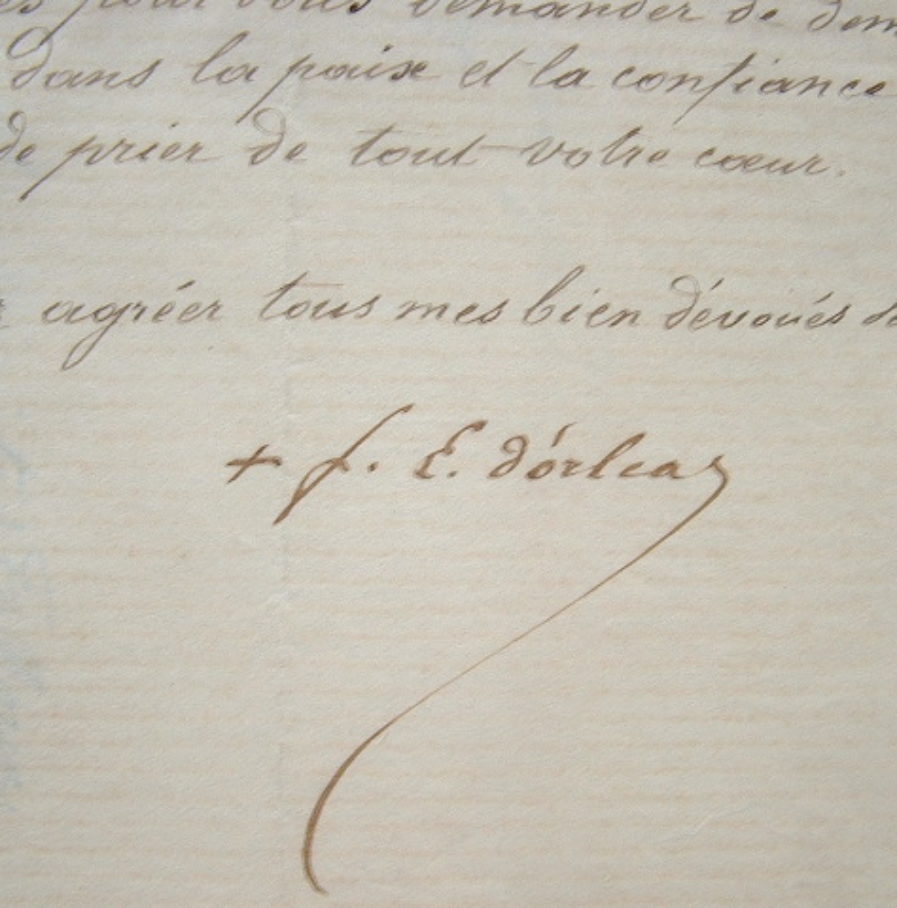 pour vous demander de dem
dans la paix et la confiance
de prier de tout votre cœur.
agréer tous mes bien dévoués
+ f. E. d'orleas